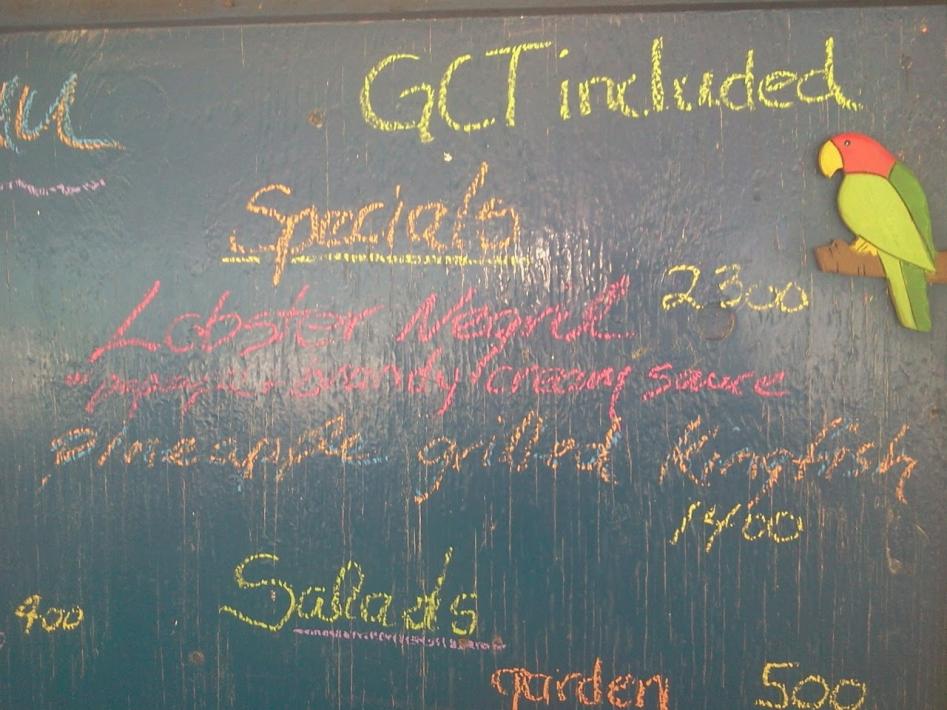 GCT included
Specials
Lobster Negril 2300
brandy creamy sauce
Pineapple grilled Kingfish
1400
Salads
400
garden 500